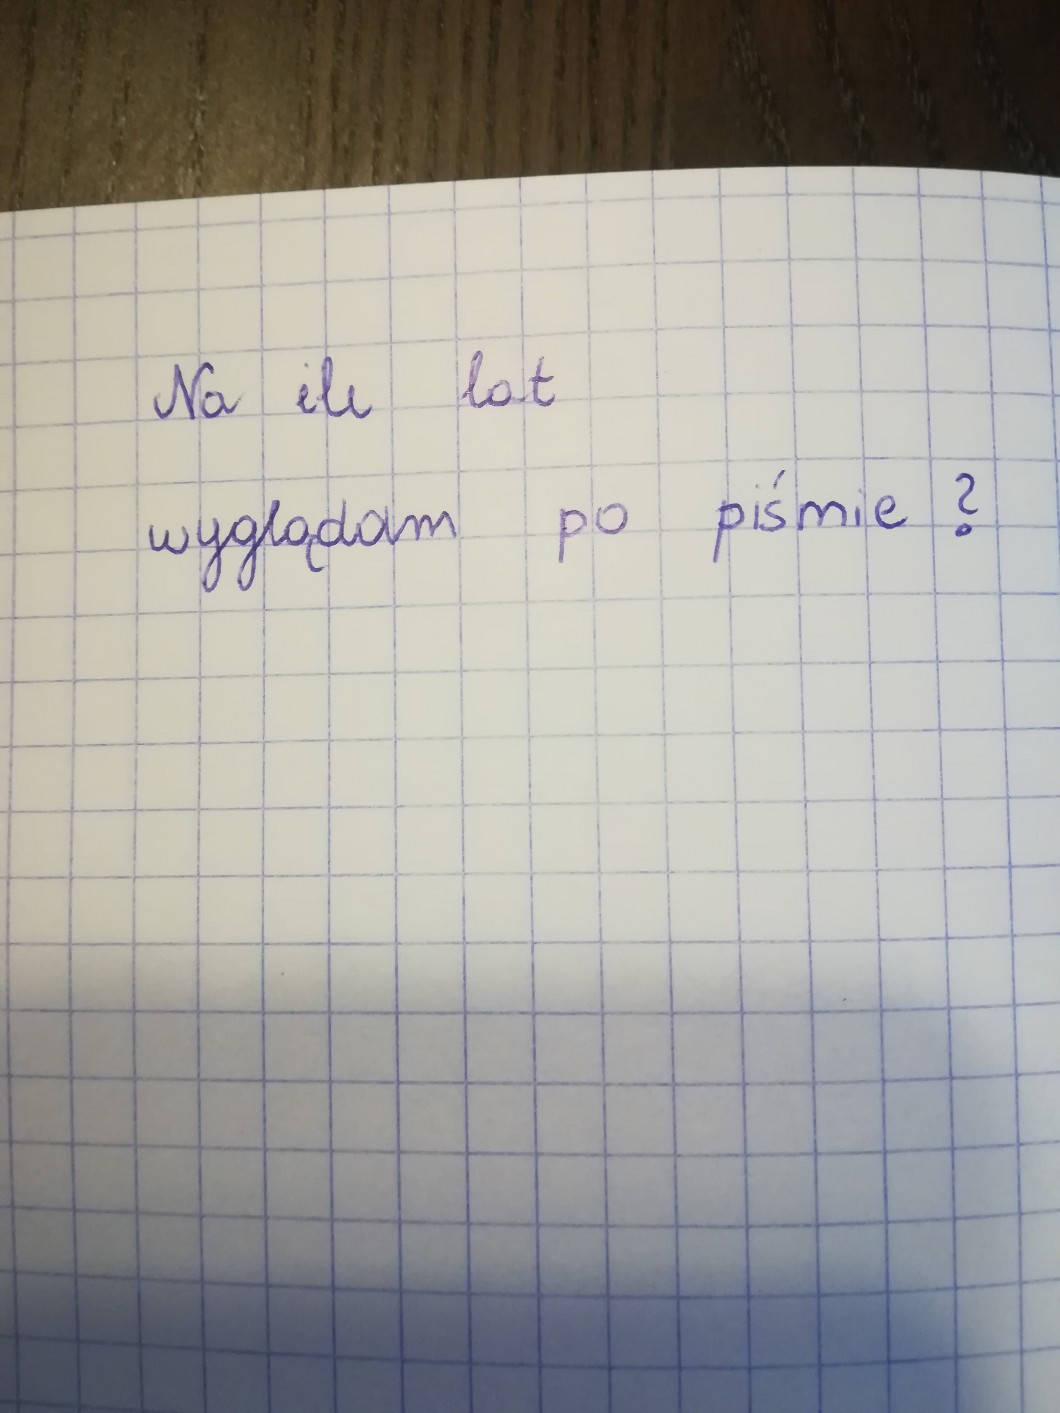 Na ile lat
wyglądam po piśmie?